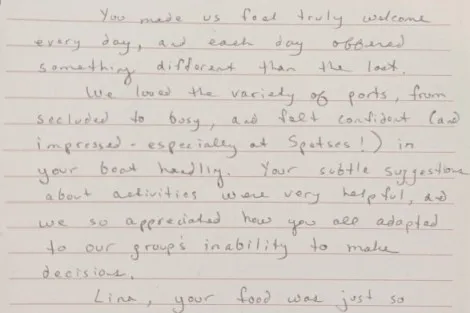 You made us feel truly welcome
every day, and each day offered
something different than the last.
We loved the variety of ports, from
secluded to busy, and felt confident (and
impressed - especially at Spetses!) in
your boat handling. Your subtle suggestions
about activities were very helpful, and
we so appreciated how you all adapted
to our group's inability to make
decisions.
Lina, your food was just so